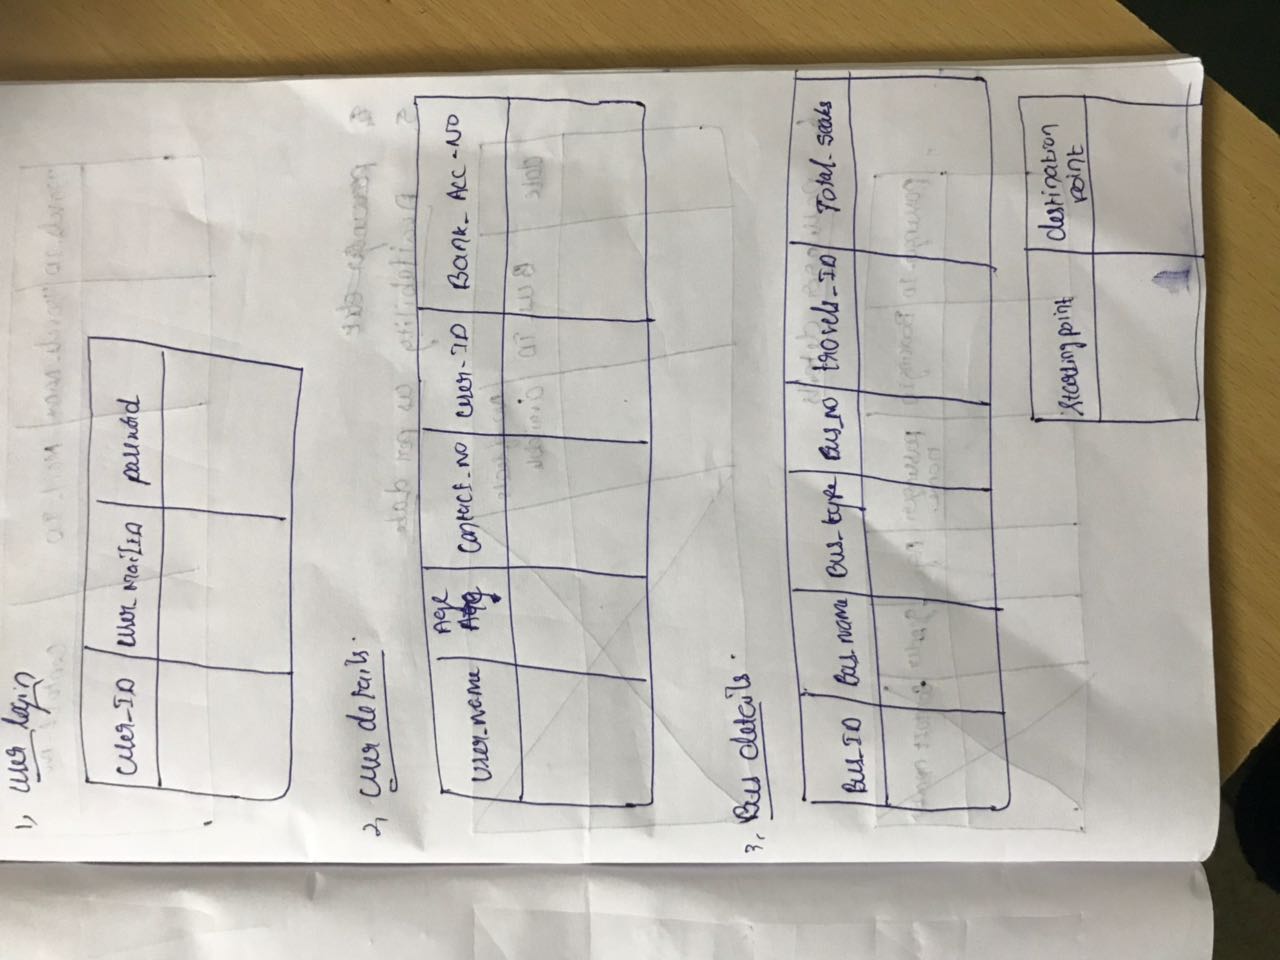 1, user login
user-ID user_mailID password
2, user details.
user_name Age contact_no user-ID Bank_Acc-No
3, Bus details.
Bus_ID Bus_name Bus_type Bus_no travels_ID Total_seats
Starting point destination
point